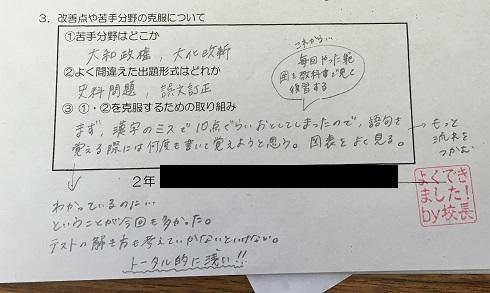 3. 改善点や苦手分野の克服について
①苦手分野はどこか
大和政権, 大化改新
②よく間違えた出題形式はどれか
史料問題, 誤文訂正
③ ①・②を克服するための取り組み
まず、漢字のミスで10点ぐらいおとしてしまったので、語句を
覚える際には何度も書いて覚えようと思う。図表をよく見る。
これから…
毎回やった範
囲を教科書で見て
復習する
→もっと
流れを
つかむ
2年
わかっているのに…
ということが今回も多かった。
テストの解き方も考えていかないといけない。
トータル的に凄い!!
よくでき
ました!
by校長